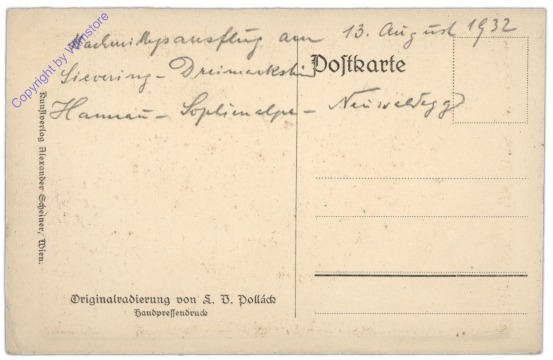 Nachmittagsausflug am 13. August 1932
Sievering - Dreimarkstein
Postkarte
Hameau - Sophienalpe - Neuwaldegg
Copyright by Wimstore
Kunstverlag Alexander Scheiner, Wien.
Originalradierung von L. V. Pollàck
Handpressendruck